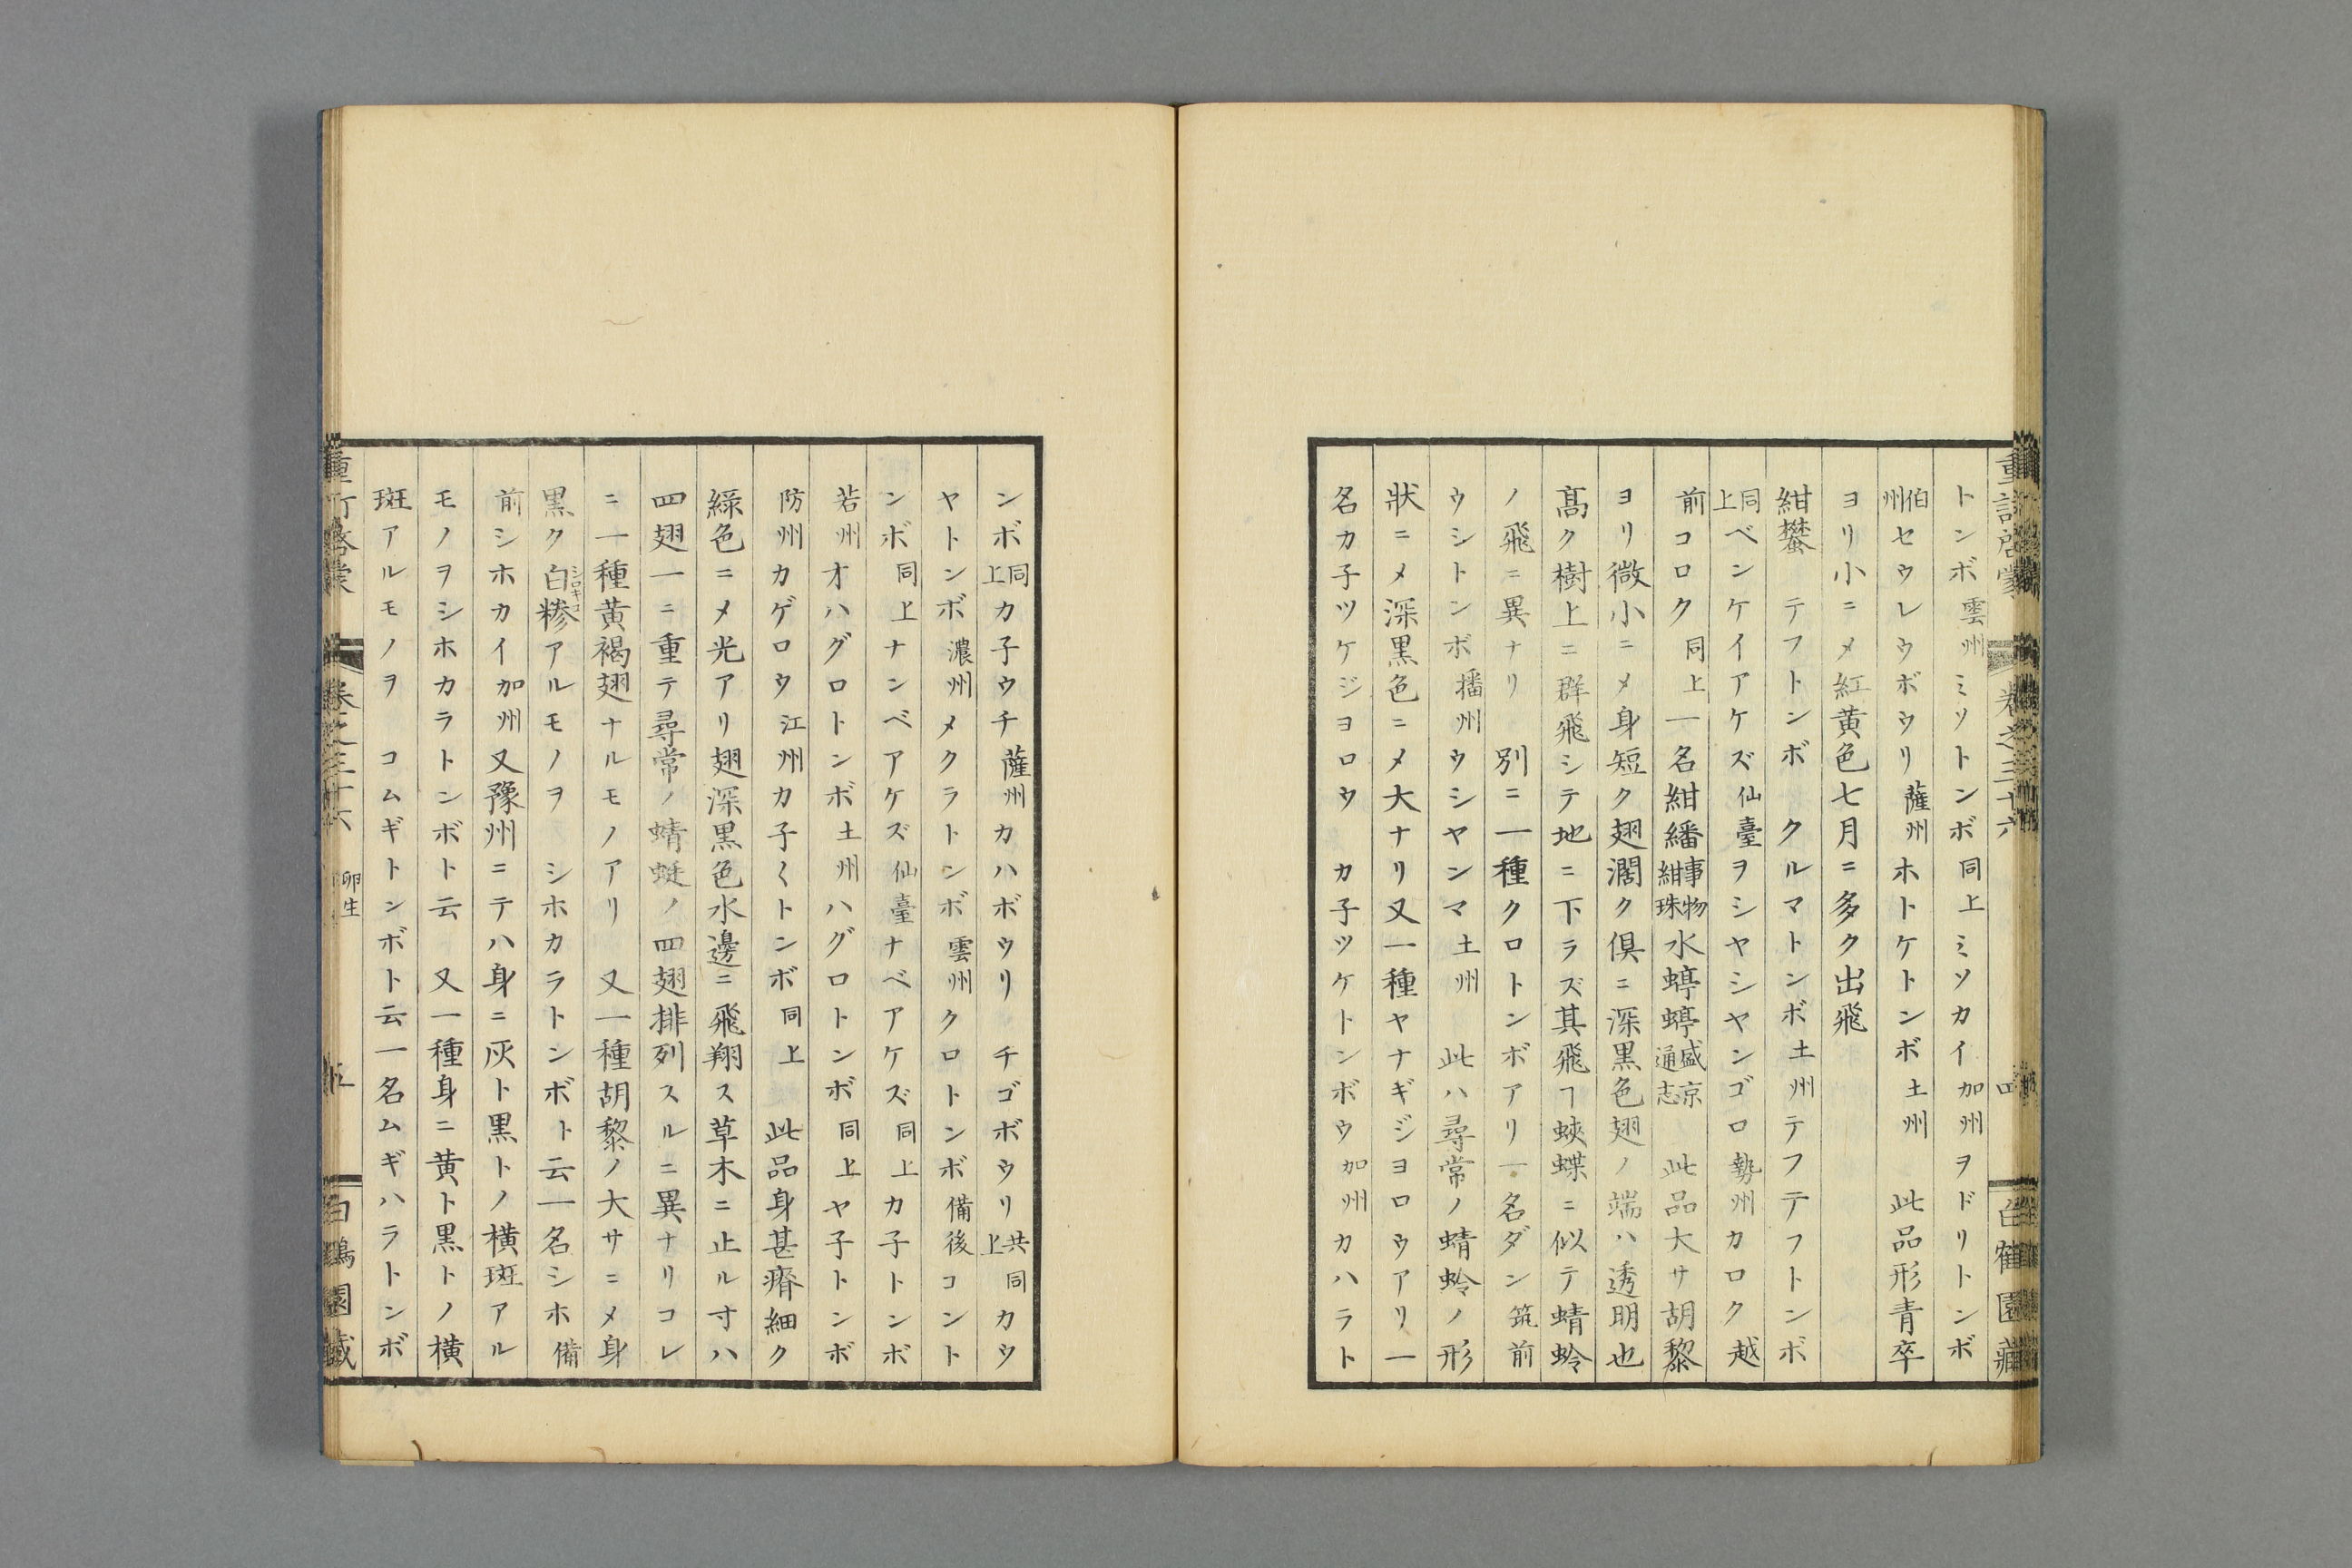 トンボ雲州ミソトンボ同上ミソカイ加州ヲドリトンボ
伯州セウレウボウリ薩州ホトケトンボ土州 此品形青卒
ヨリ小ニメ紅黄色七月ニ多ク出飛
紺蠜 テフトンボ クルマトンボ土州テフテフトンボ
同上ベンケイアケズ仙臺ヲシヤシヤンゴロ勢州カロク越
前コロク同上一名紺繙事物紺珠水蝏蝏盛京通志 此品大サ胡黎
ヨリ微小ニメ身短ク翅濶ク倶ニ深黒色翅ノ端ハ透明也
髙ク樹上ニ群飛シテ地ニ下ラズ其飛ヿ蛺蝶ニ似テ蜻蛉
ノ飛ニ異ナリ 別ニ一種クロトンボアリ一名ダン筑前
ウシトンボ播州ウシヤンマ土州 此ハ尋常ノ蜻蛉ノ形
狀ニメ深黒色ニメ大ナリ又一種ヤナギジヨロウアリ一
名カ子ツケジヨロウ カ子ツケトンボウ加州カハラト
ンボ同上カ子ウチ薩州カハボウリ チゴボウリ共同上カウ
ヤトンボ濃州メクラトンボ雲州クロトンボ備後コント
ンボ同上ナンベアケズ仙臺ナベアケズ同上カ子トンボ
若州オハグロトンボ土州ハグロトンボ同上ヤ子トンボ
防州カゲロウ江州カ子〱トンボ同上 此品身甚瘠細ク
綠色ニメ光アリ翅深黒色水邊ニ飛翔ス草木ニ止ル寸ハ
四翅一ニ重テ尋常ノ蜻蜓ノ四翅排列スルニ異ナリコレ
ニ一種黄褐翅ナルモノアリ 又一種胡黎ノ大サニメ身
黒ク白糝シロキコアルモノヲ シホカラトンボト云一名シホ備
前シホカイ加州又豫州ニテハ身ニ灰ト黒トノ横斑アル
モノヲシホカラトンボト云 又一種身ニ黄ト黒トノ横
斑アルモノヲ コムギトンボト云一名ムギハラトンボ
卷之三十六 卵生